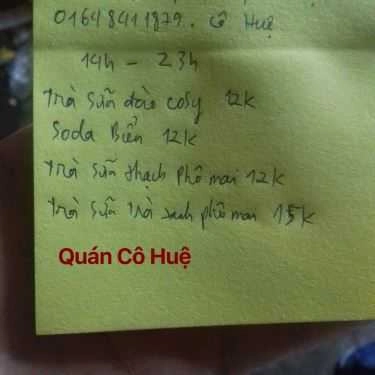 01648411879. Cô Huệ
14h - 23h
Trà sữa đào cosy 12k
Soda Biển 12k
Trà sữa thạch phô mai 12k
Trà sữa trà xanh phô mai 15k
Quán Cô Huệ